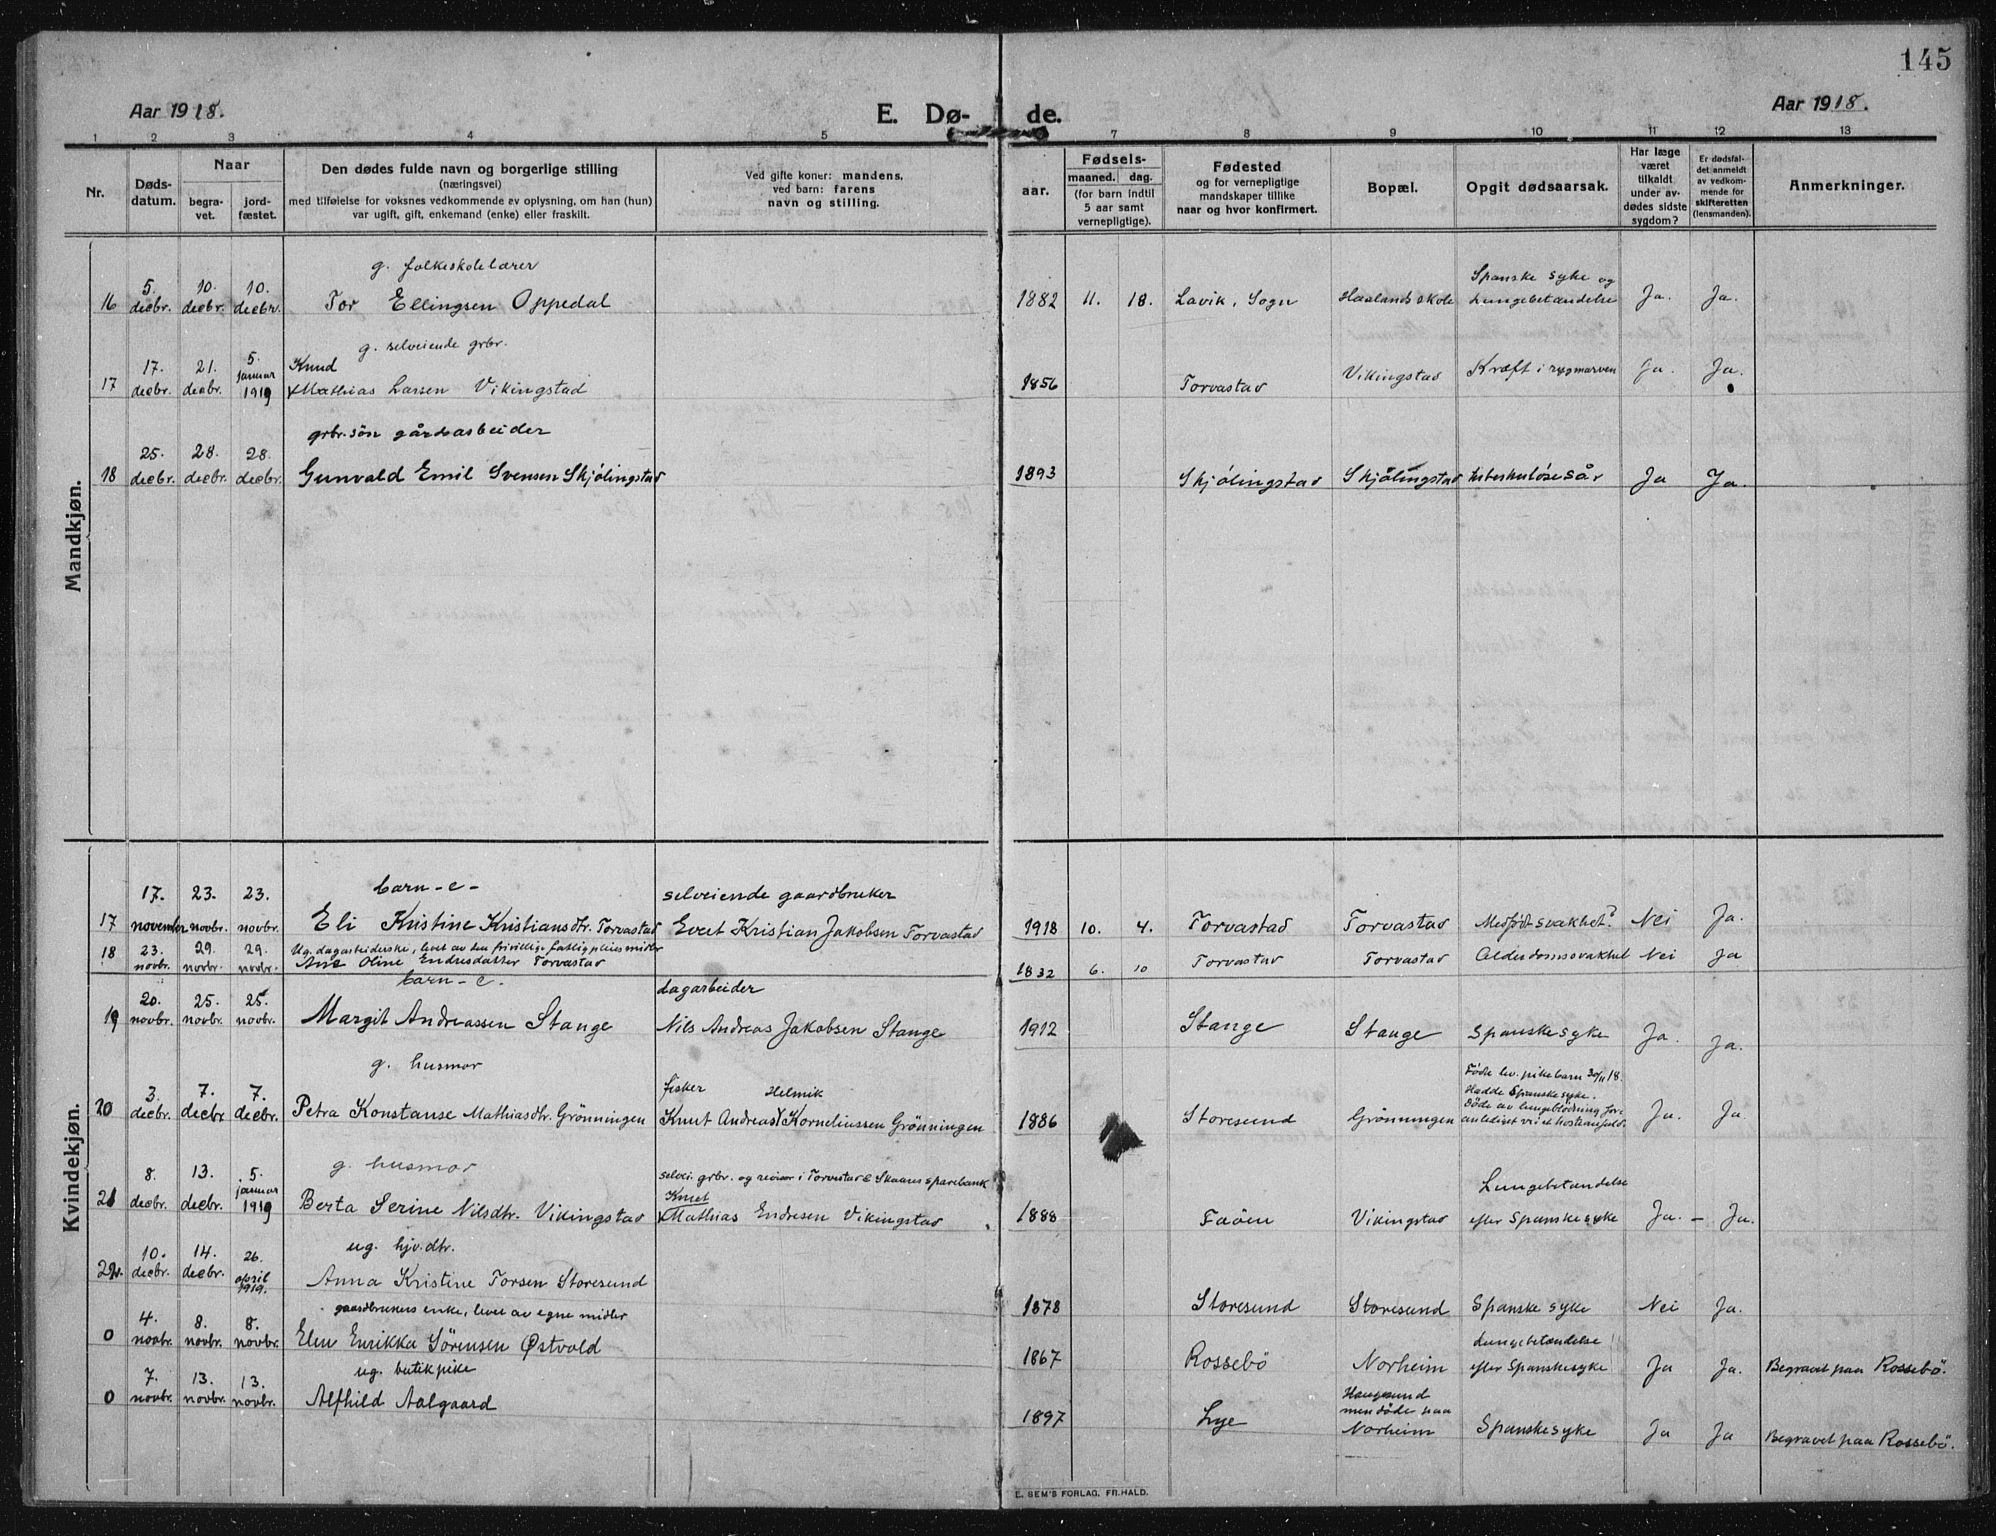 145
Aar 1918. E. Dø- de. Aar 1918.
1 2 3 4 5 7 8 9 10 11 12 13
Nr.
Døds-
datum.
Naar
begra-
vet.
jord-
fæstet.
Den dødes fulde navn og borgerlige stilling
(næringsvei)
med tilføielse for voksnes vedkommende av oplysning, om han (hun)
var ugift, gift, enkemand (enke) eller fraskilt.
Ved gifte koner: mandens,
ved barn: farens
navn og stilling.
aar.
Fødsels-
maaned. dag.
(for barn indtil
5 aar samt
vernepligtige).
Fødested
og for vernepligtige
mandskaper tillike
naar og hvor konfirmert.
Bopæl.
Opgit dødsaarsak.
Har læge
været
tilkaldt
under av-
dødes sidste
sygdom?
Er dødsfal-
det anmeldt
av vedkom-
mende for
skifteretten
(lensmanden).
Anmerkninger.
Mandkjøn.
g. folkeskolelærer Spanske syke og
5. 10. 10.
16 decbr. decbr. decbr. Tor Ellingsen Oppedal 1882 11. 18. Lavik, Sogn Haaland skole Lungebetændelse Ja. Ja.
g. selveiende grbr.
17. 21. 5. januar Knud
17 decbr. decbr. 1919 × Mathias Larsen Vikingstad 1856 Torvastad Vikingstad Kræft i rygmarven Ja. Ja.
grbr. søn gårdsarbeider
25. 28. 28.
18 decbr. decbr. decbr. Gunvald Emil Svensen Skjölingstad 1893 Skjölingstad Skjölingstad tuberkuløse sår Ja Ja.
Kvindekjøn.
17. 23. 23. barn - e - selveiende gaardbruker
17 november novbr. novbr. Eli Kristine Kristiansdtr. Torvastad Evert Kristian Jakobsen Torvastad 1918 10. 4. Torvastad Torvastad Medfødt svakhet? Nei Ja.
23. 29. 29. Ug. dagarbeiderske, levet av den frivillige fattigpleies midler
18 novbr. novbr. novbr. Ane Oline Endresdatter Torvastad 1832 6. 10 Torvastad Torvastad Alderdomssvakhet Nei Ja
20. 25. 25. barn - e. dagarbeider
19 novbr. novbr. novbr. Margit Andreassen Stange Nils Andreas Jakobsen Stange 1912 Stange Stange Spanske syke Ja. Ja.
g. husmor fisker Helmik Føde lev. pikebarn 30/11 18.
Hadde Spanske syke.
3. 7. 7. Døde av lungeblødning for-
20 decbr. decbr decbr. Petra Konstanse Mathiasdtr. Grönningen Knut Andreas Korneliussen Grönningen 1886 Storesund Grönningen anlediget ved et hosteanfald. Ja. Ja.
8. 13. 5. januar g. husmor selvei. grbr. og revisor i Torvastad & Skaares sparebank Lungebetændelse
Knut
21 decbr. decbr. 1919 Berta Serine Nilsdtr. Vikingstad × Mathias Endresen Vikingstad 1888 Faöen Vikingstad efter Spanske syke Ja. - Ja.
10. 14. 26. ug. hjv. dtr.
22. decbr. decbr. april 1919. Anna Kristine Torsen Storesund 1878 Storesund Storesund Spanske syke Nei Ja.
4. 8. 8. gaardbrukers enke, levet av egne midler Lungebetændelse
0 novbr. novbr. novbr. Elen Enrikka Sörensen Østvold 1867 Rossebö Norheim efter Spanskesyke Ja Ja. Begravet paa Rossebö.
7. 13. 13. ug. butikpike Haugesund
men döde paa
0 novbr. novbr. novbr. Alfhild Aalgaard 1897 Lye Norheim Spanskesyke Ja Ja Begravet paa Rossebö.
E. SEM'S FORLAG. FR.HALD.